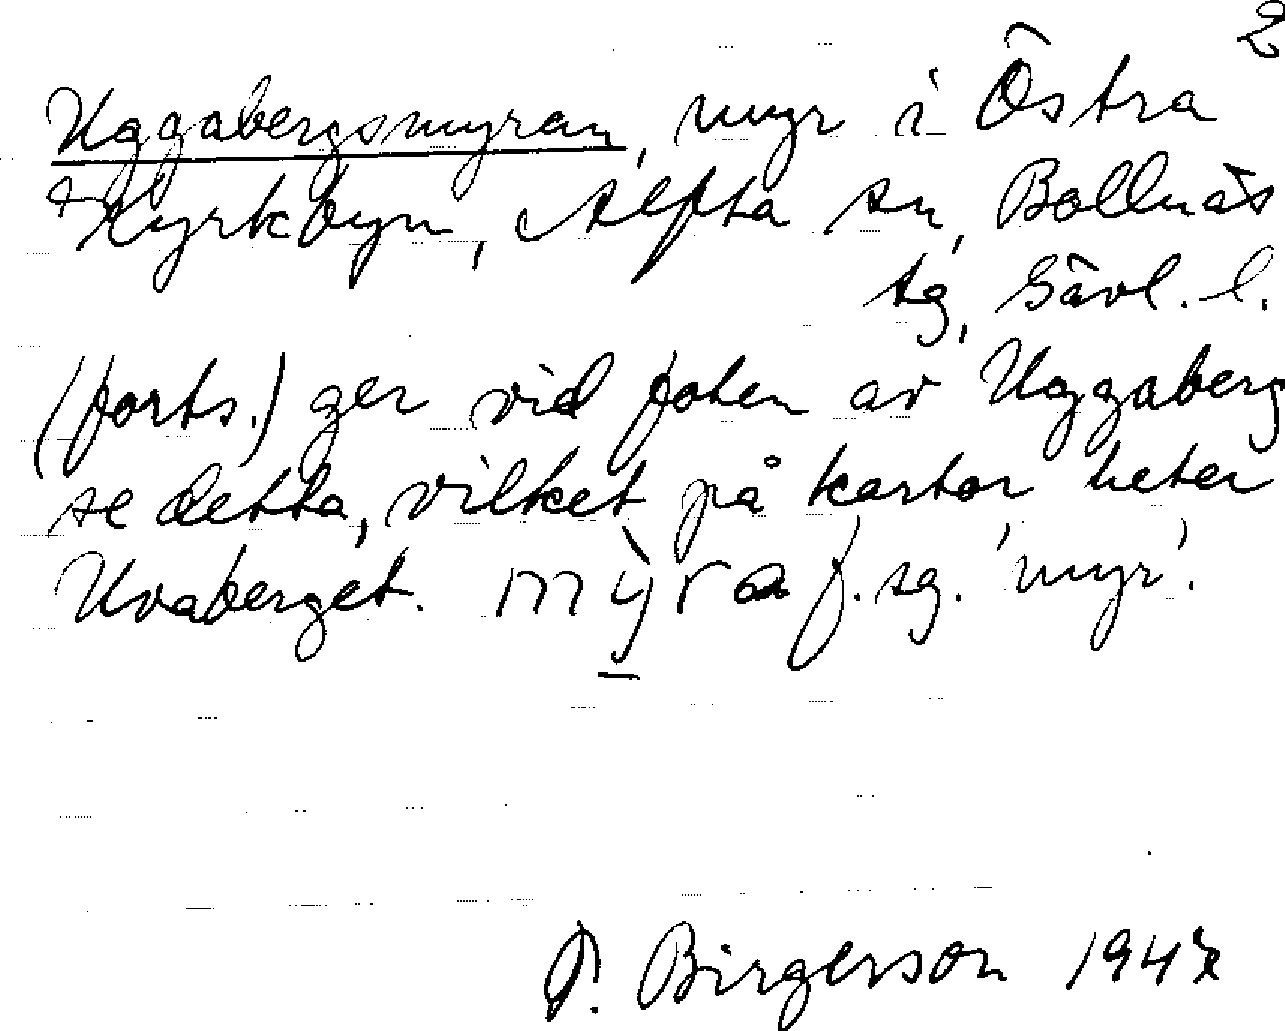 2
Uggabergsmyran, myr i Östra
Kyrkbyn, Alfta sn, Bollnäs
tg, Gävl. l.
(forts.) ger vid foten av Uggaberg
se detta, vilket på kartor heter
Uvaberget. mỳra f. sg. 'myr'.
Birgerson